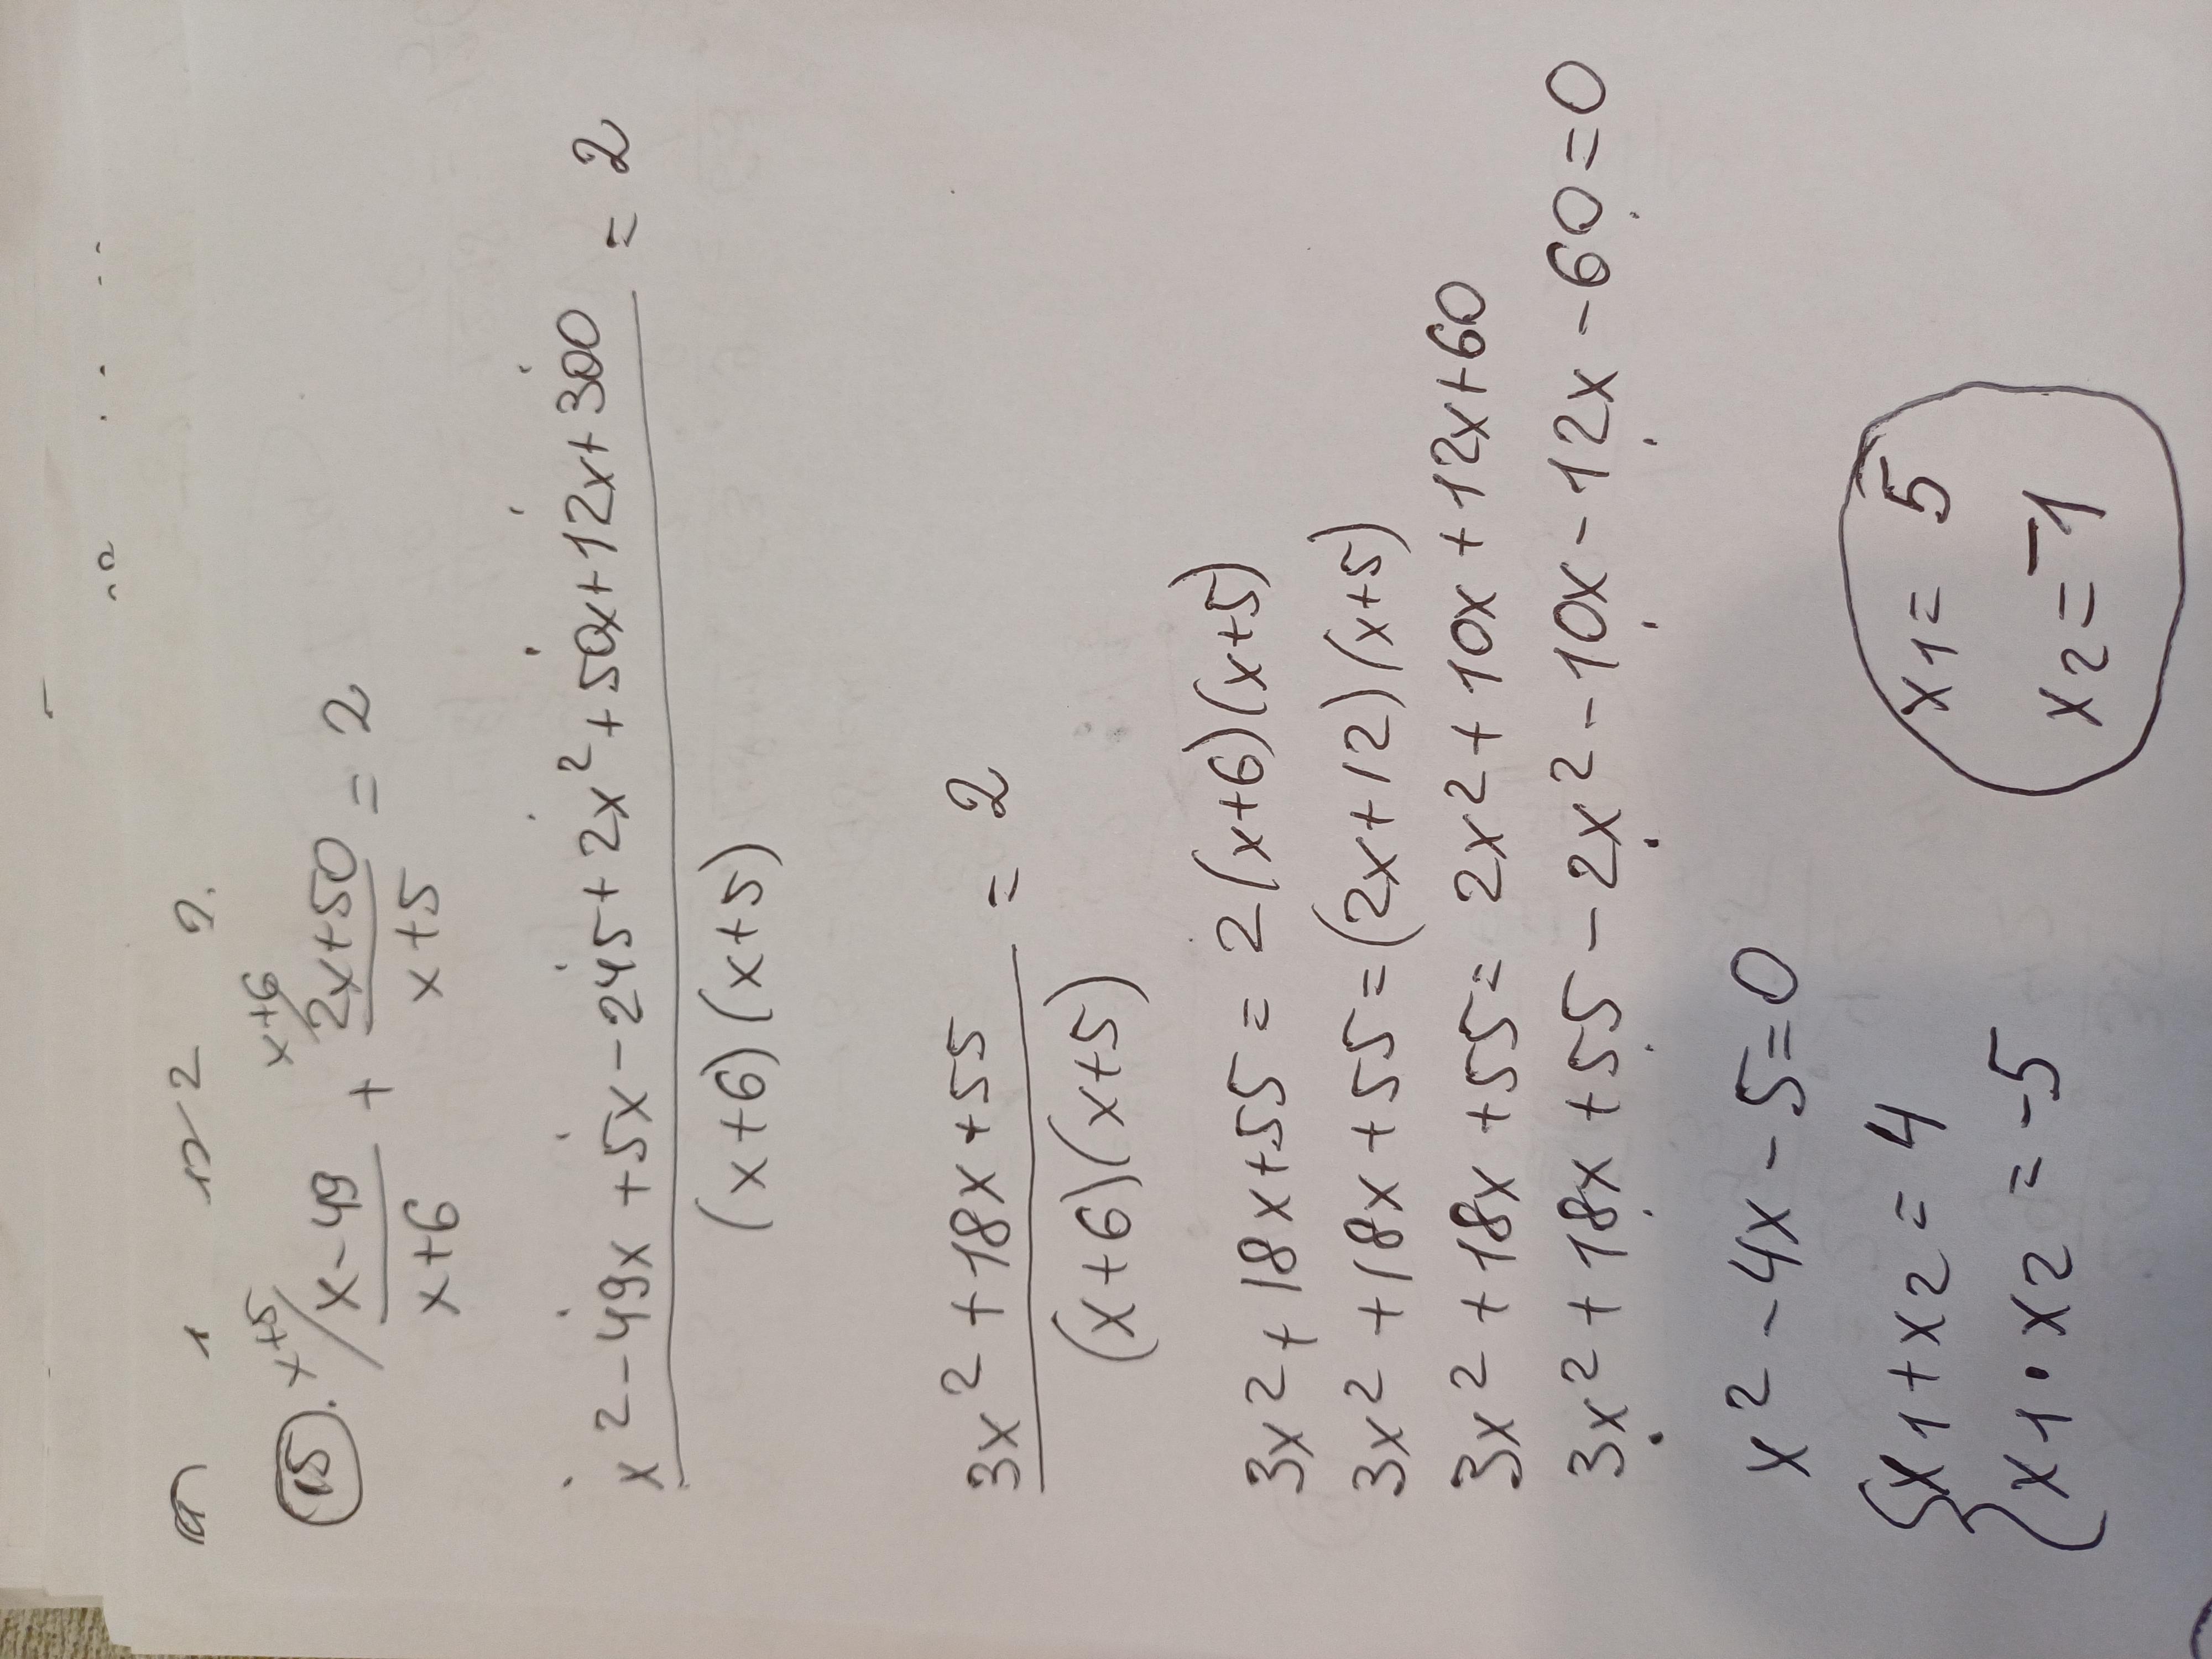 15. x+5/ (x-49)/(x+6) + x+6/ (2x+50)/(x+5) = 2
(x² - 49x + 5x - 245 + 2x² + 50x + 12x + 300)/((x+6)(x+5)) = 2
(3x² + 18x + 55)/((x+6)(x+5)) = 2
3x² + 18x + 55 = 2(x+6)(x+5)
3x² + 18x + 55 = (2x+12)(x+5)
3x² + 18x + 55 = 2x² + 10x + 12x + 60
3x² + 18x + 55 - 2x² - 10x - 12x - 60 = 0
x² - 4x - 5 = 0
{ x1 + x2 = 4
x1 · x2 = -5
x1 = 5
x2 = -1